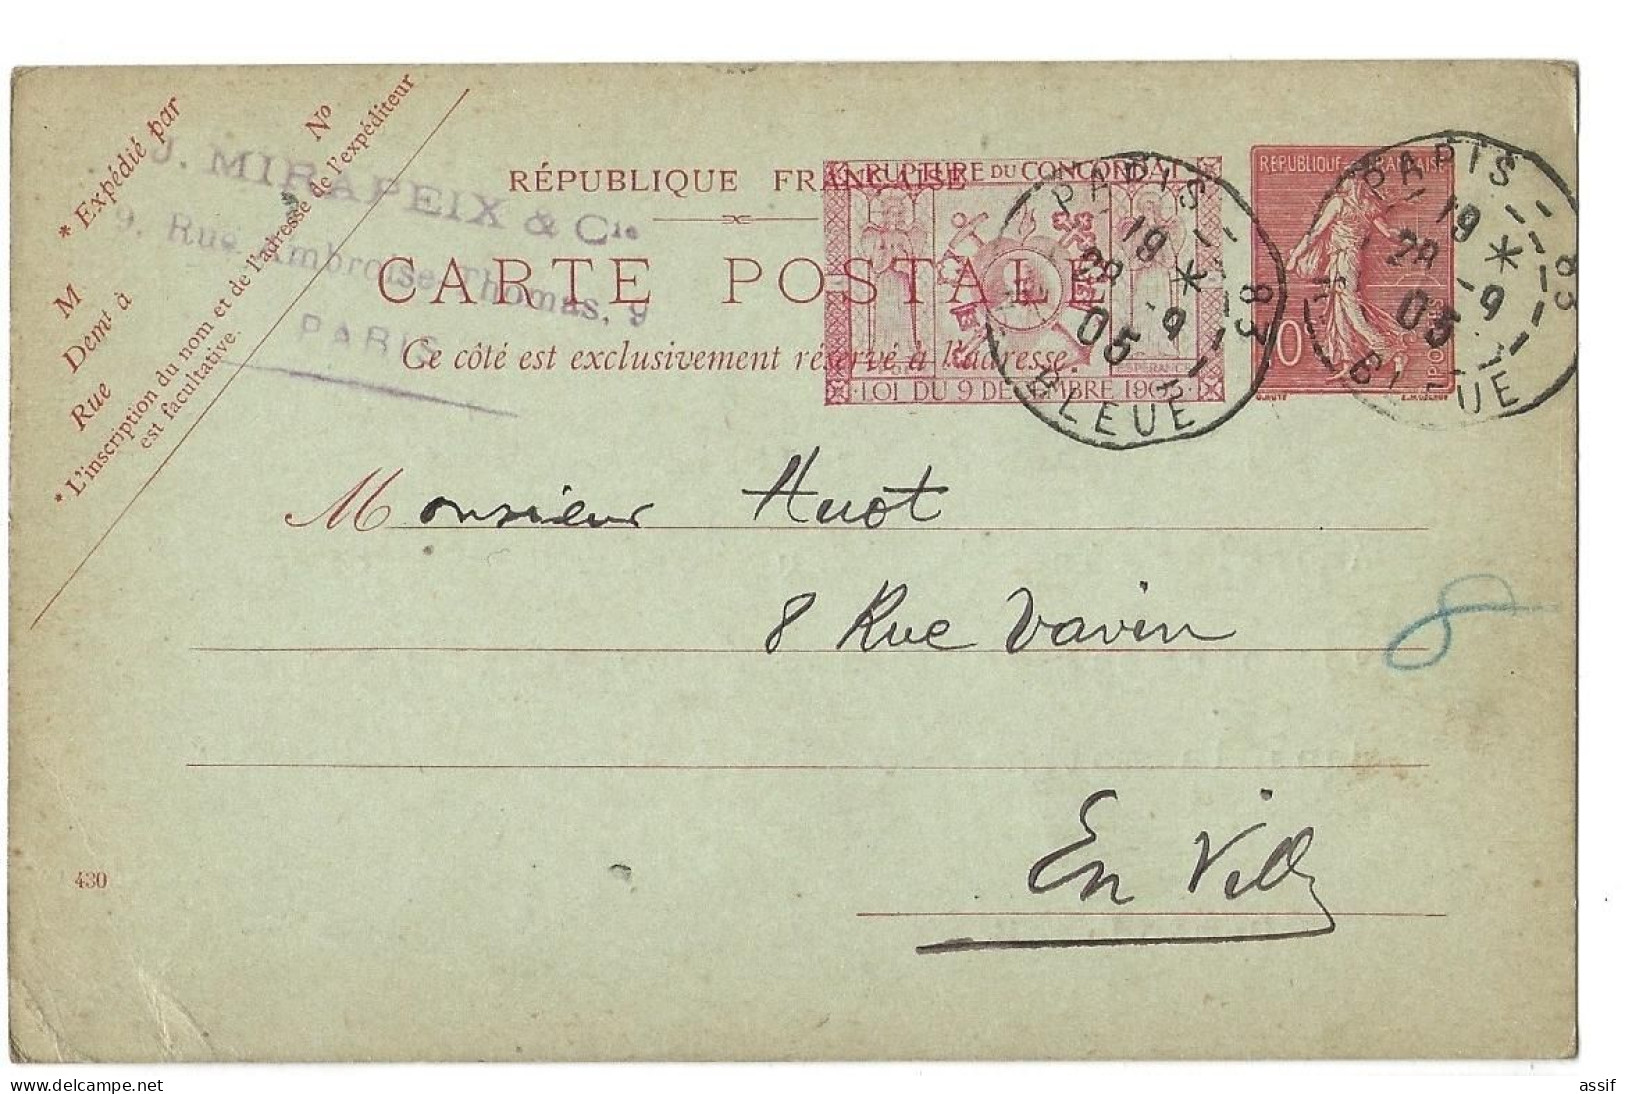 * Expédié par
M
Demt à
Rue
No
* L'inscription du nom et de l'adresse de l'expéditeur
est facultative.
J. MIRAPEIX & Cie
9, Rue Ambroise Thomas, 9
PARIS
RÉPUBLIQUE FRANÇAISE
CARTE POSTALE
Ce côté est exclusivement réservé à l'adresse.
RUPTURE DU CONCORDAT
ESPÉRANCE
LOI DU 9 DECEMBRE 1905
PARIS 83
19 *
28 -9
05
R. BLEUE
RÉPUBLIQUE FRANÇAISE
10
POSTES
PARIS 83
19 *
28 -9
05
R. BLEUE
Monsieur Huot
8 Rue Vavin
8
En Ville
430
assif